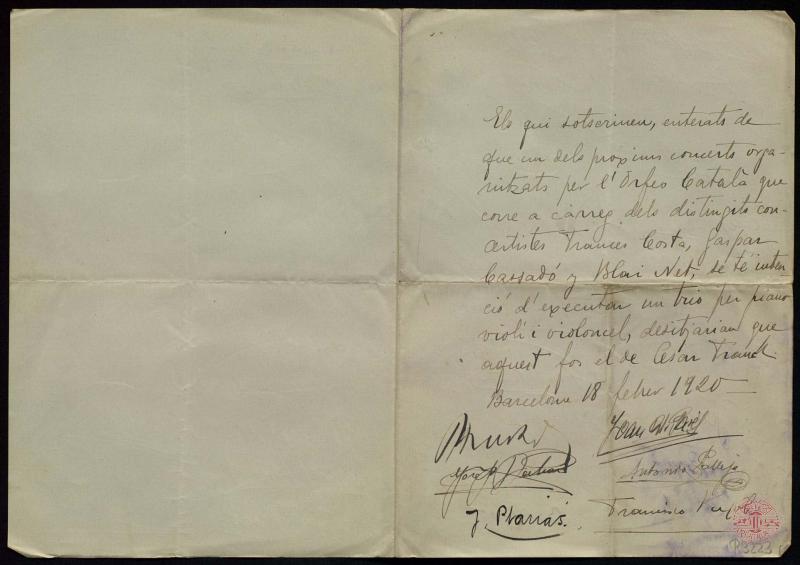 Els qui sotscriuen, enterats de
que un dels proxims concerts orga-
nitzats per l'Orfeo Català que
corre a càrreg dels distingits con-
certistes Francés Costa, Gaspar
Cassadó y Blai Net, se té inten-
ció d'executar un trio per piano
violí i violoncel, desitjarian que
aquest fos el de César Franck.
Barcelona 18 febrer 1920
Joan
Josep
Antonio
J. Plarias.
Francisco
P3223